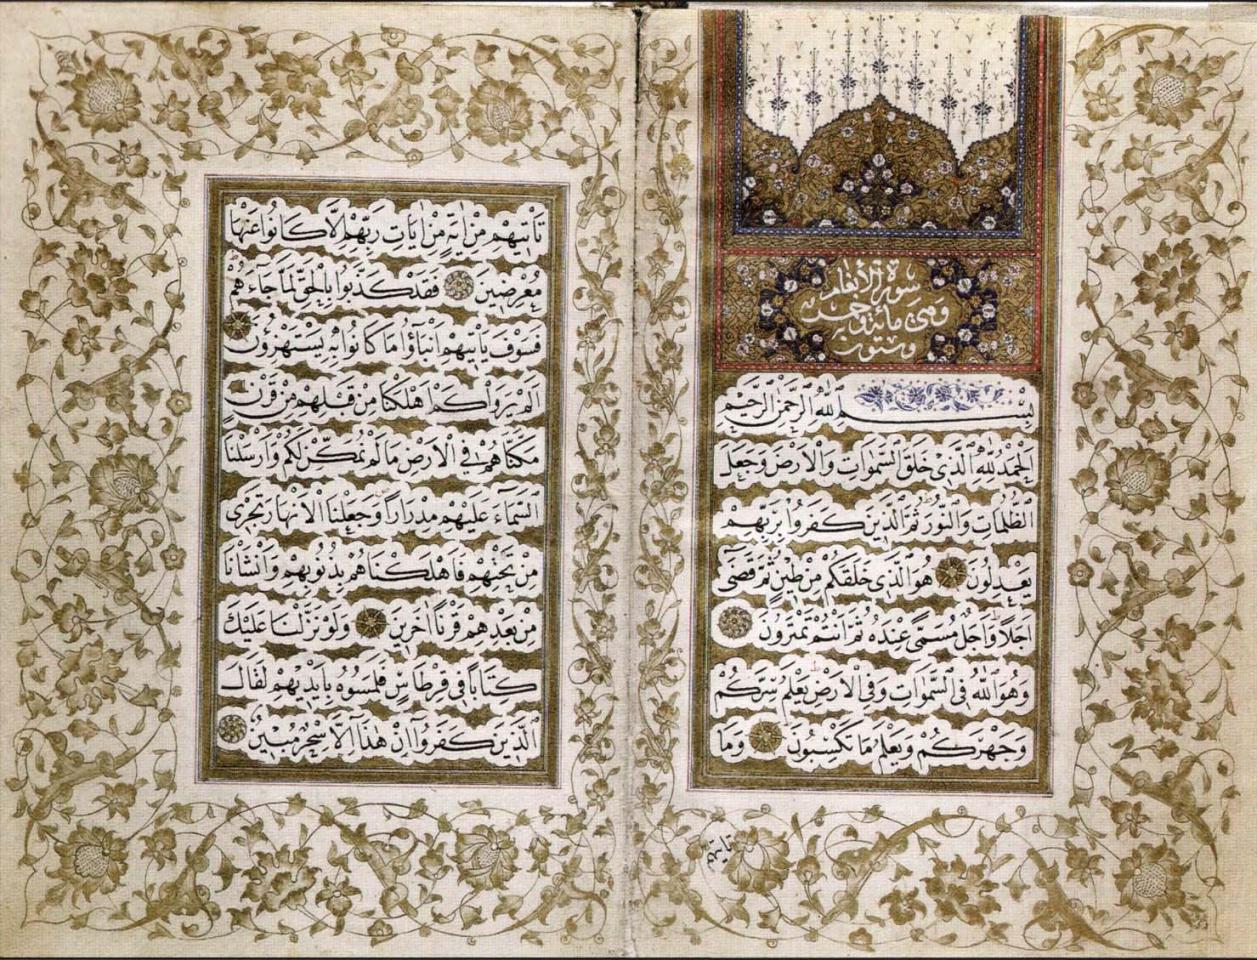 سورة الأنعام
وهى مائة وخمس
وستون
بِسْمِ اللهِ الرَّحْمٰنِ الرَّحِيمِ
اَلْحَمْدُ لِلّٰهِ الَّذِى خَلَقَ السَّمٰوَاتِ وَالْاَرْضَ وَجَعَلَ
الظُّلُمَاتِ وَالنُّورَ ثُمَّ الَّذِينَ كَفَرُوا بِرَبِّهِمْ
يَعْدِلُونَ هُوَ الَّذِى خَلَقَكُمْ مِنْ طِينٍ ثُمَّ قَضٰى
اَجَلًا وَاَجَلٌ مُسَمًّى عِنْدَهُ ثُمَّ اَنْتُمْ تَمْتَرُونَ
وَهُوَ اللّٰهُ فِى السَّمٰوَاتِ وَفِى الْاَرْضِ يَعْلَمُ سِرَّكُمْ
وَجَهْرَكُمْ وَيَعْلَمُ مَا تَكْسِبُونَ وَمَا
تأتيهم
تَاْتِيهِمْ مِنْ اٰيَةٍ مِنْ اٰيَاتِ رَبِّهِمْ اِلَّا كَانُوا عَنْهَا
مُعْرِضِينَ فَقَدْ كَذَّبُوا بِالْحَقِّ لَمَّا جَاءَهُمْ
فَسَوْفَ يَاْتِيهِمْ اَنْبٰٓؤُا مَا كَانُوا بِهِ يَسْتَهْزِؤُنَ
اَلَمْ يَرَوْا كَمْ اَهْلَكْنَا مِنْ قَبْلِهِمْ مِنْ قَرْنٍ
مَكَّنَّاهُمْ فِى الْاَرْضِ مَا لَمْ نُمَكِّنْ لَكُمْ وَاَرْسَلْنَا
السَّمَاءَ عَلَيْهِمْ مِدْرَارًا وَجَعَلْنَا الْاَنْهَارَ تَجْرِى
مِنْ تَحْتِهِمْ فَاَهْلَكْنَاهُمْ بِذُنُوبِهِمْ وَاَنْشَاْنَا
مِنْ بَعْدِهِمْ قَرْنًا اٰخَرِينَ وَلَوْ نَزَّلْنَا عَلَيْكَ
كِتَابًا فِى قِرْطَاسٍ فَلَمَسُوهُ بِاَيْدِيهِمْ لَقَالَ
الَّذِينَ كَفَرُوا اِنْ هٰذَا اِلَّا سِحْرٌ مُبِينٌ